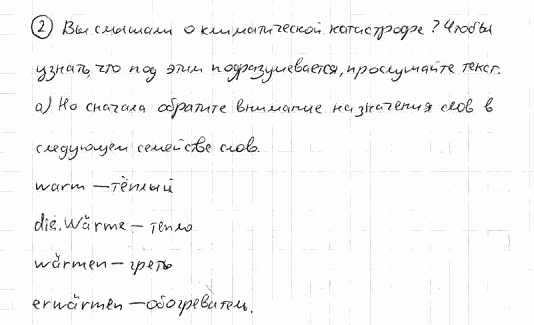 ② Вы слышали о климатической катастрофе? Чтобы
узнать, что под этим подразумевается, прослушайте текст.
а) Но сначала обратите внимание на значения слов в
следующем семействе слов.
warm – тёплый
die Wärme – тепло
wärmen – греть
erwärmen – обогреватель.